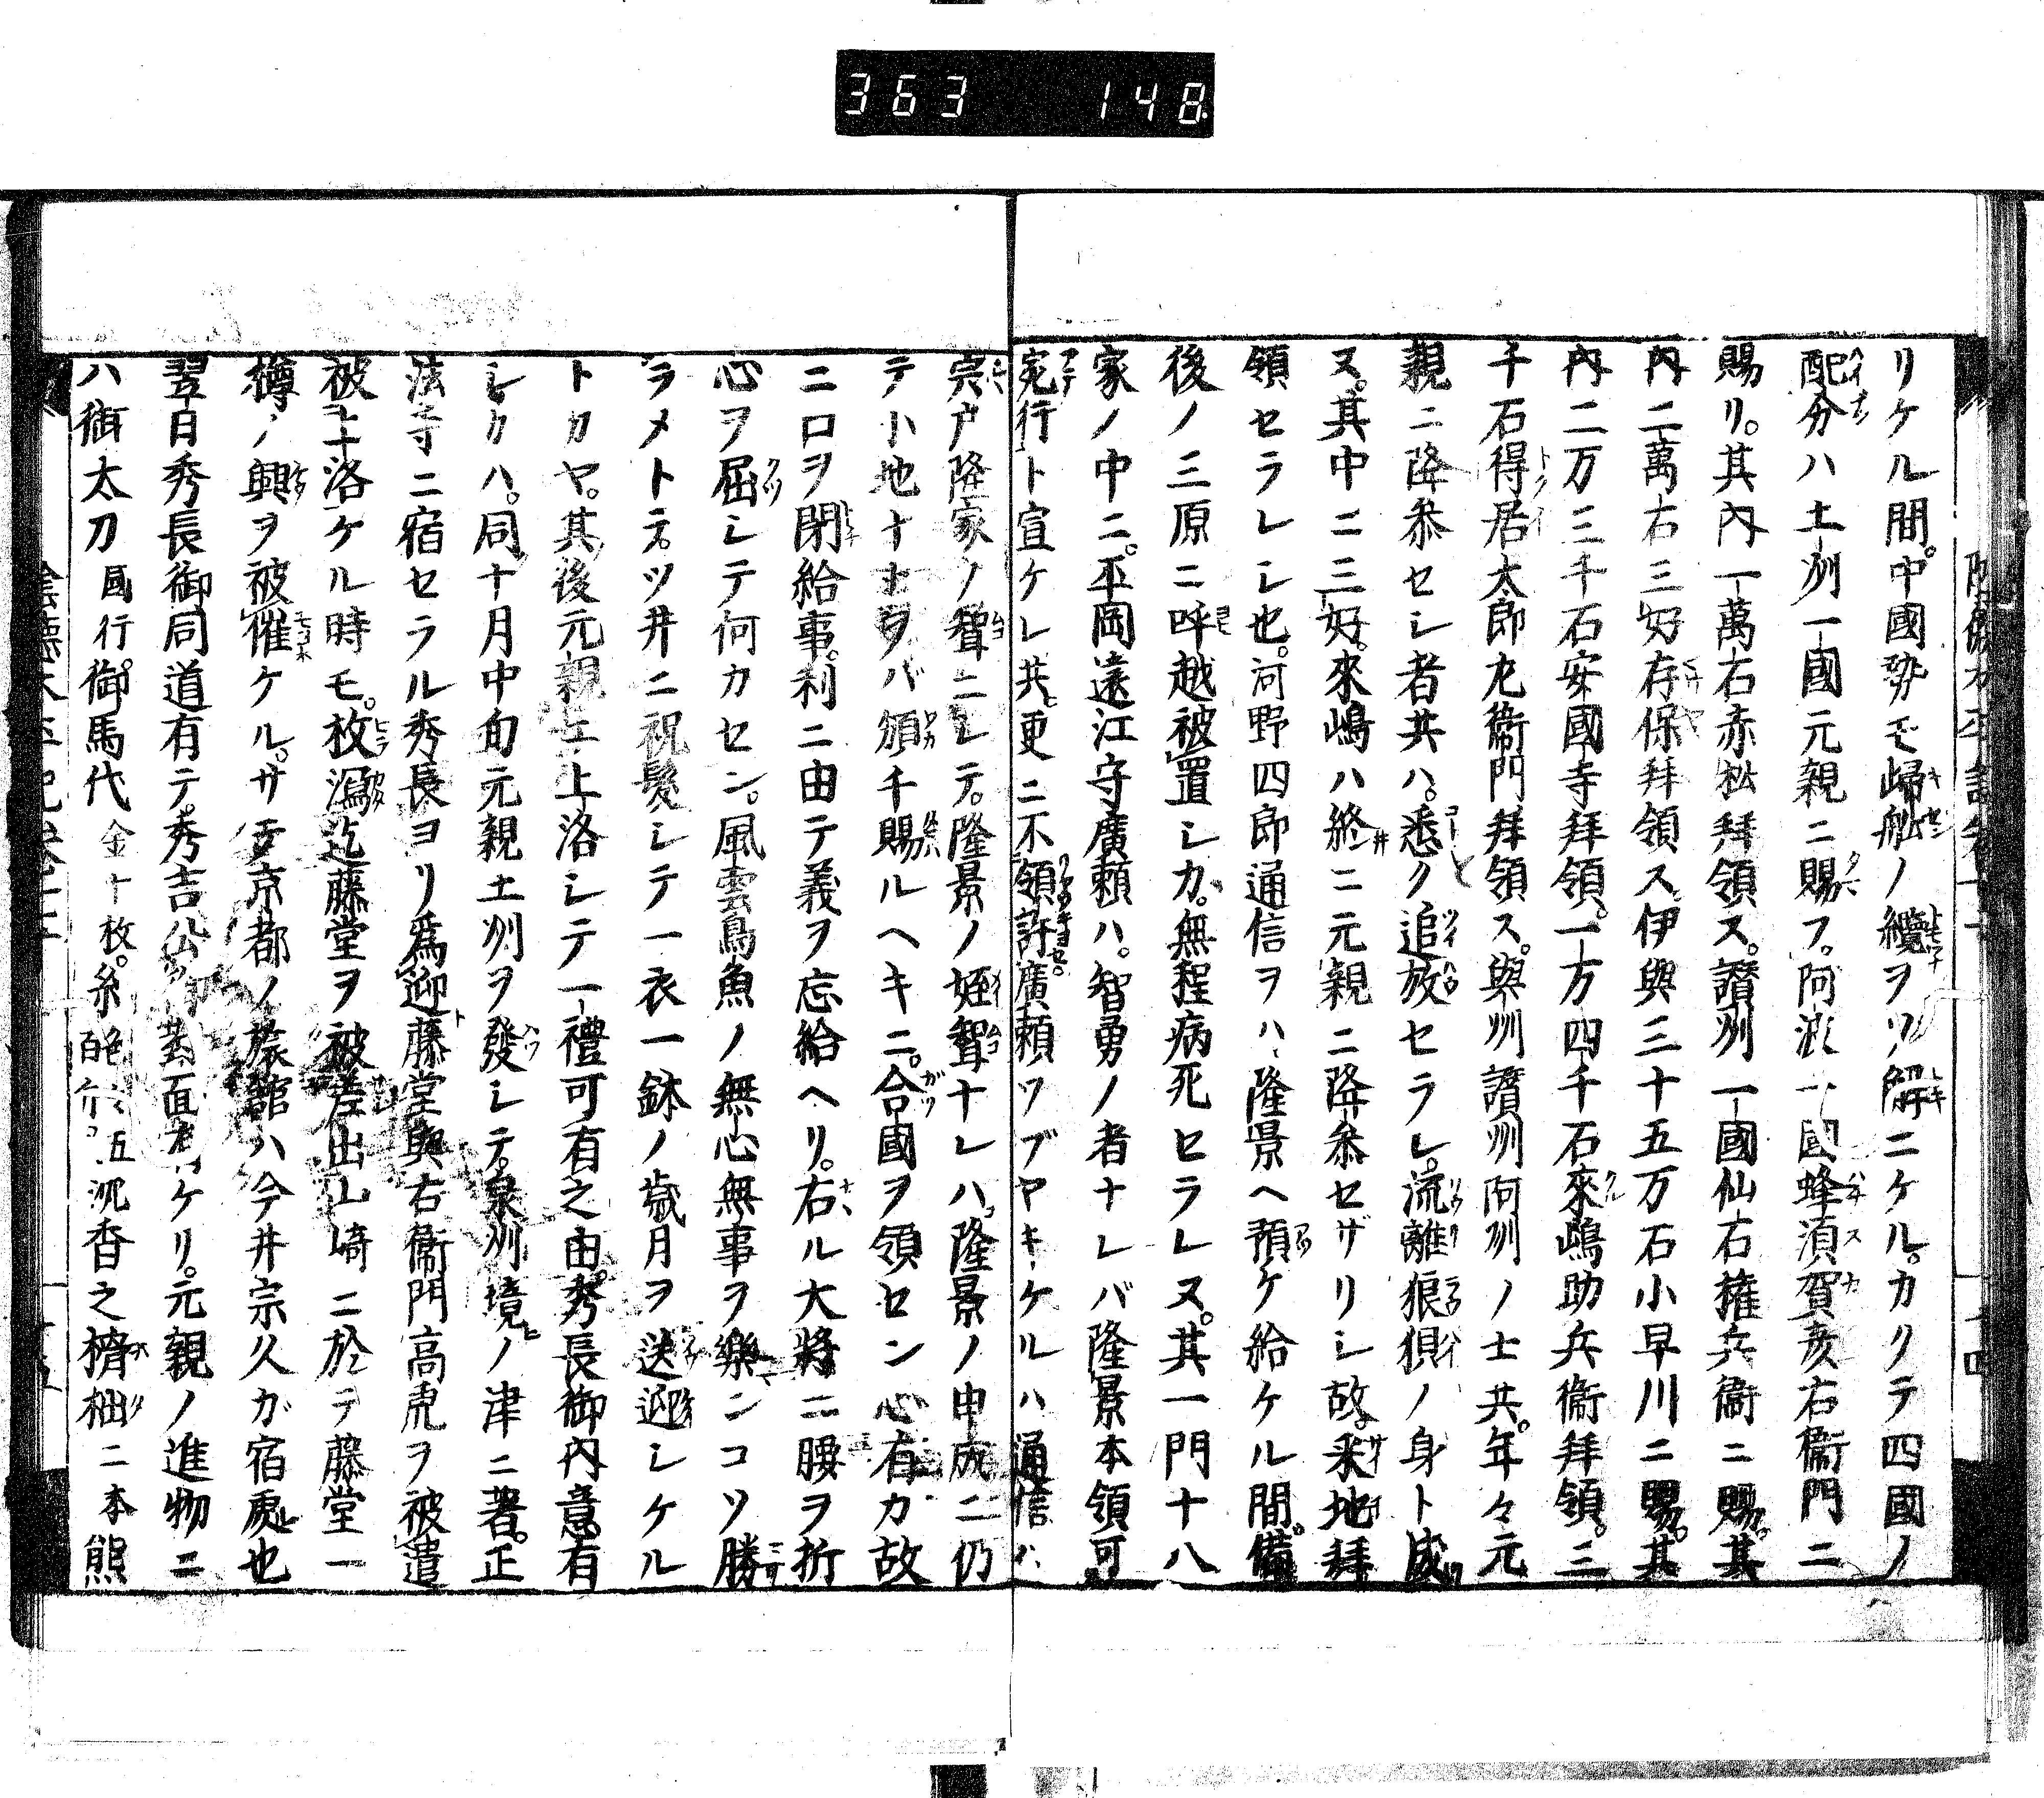 363 148
リケル間。中國勢モ歸舩ノ纜ヲソ解ニケル。カクテ四國ノ
配分ハ土刕一國元親ニ賜フ。阿波一國蜂須賀彦右衞門ニ
賜リ。其內一萬石赤松拜領ス。讃刕一國仙石權兵衞ニ賜。其
內二萬石三好存保拜領ス。伊與三十五万石小早川ニ賜。其
內二万三千石安國寺拜領。一万四千石來嶋助兵衞拜領。三
千石得居太郎九衞門拜領ス。與刕讃刕阿刕ノ士共。年々元
親ニ降叅セシ者共ハ。悉ク追放セラレ。流離狼狽ノ身ト成
ヌ。其中ニ三好。來嶋ハ終ニ元親ニ降叅セザリシ故。釆地拜
領セラレシ也。河野四郎通信ヲハ隆景ヘ預ケ給ケル間。備
後ノ三原ニ呼越被置シカ。無程病死セラレヌ。其一門十八
家ノ中ニ。平岡遠江守廣賴ハ。智勇ノ者ナレバ隆景本領可
宛行ト宣ケレ共。更ニ不領許。廣賴ツブヤキケルハ通信ハ
宍戶隆家ノ聟ニシテ。隆景ノ姪聟ナレハ。隆景ノ申成ニ仍
テ小地ナトヲバ頒千賜ルヘキニ。合國ヲ領セン心有カ故
ニ口ヲ閉給事。利ニ由テ義ヲ忘給ヘリ。右ル大將ニ腰ヲ折
心ヲ屈シテ何カセン。風雲鳥魚ノ無心無事ヲ樂ンコソ勝
ラメトテ。ツ井ニ祝髮シテ一衣一鉢ノ歲月ヲ送迎シケル
トカヤ。其後元親上上洛シテ一禮可有之由。秀長御內意有
シカハ。同十月中旬元親土刕ヲ發シテ。泉刕境ノ津ニ著。正
法寺ニ宿セラル秀長ヨリ爲迎藤堂與右衞門高虎ヲ被遣
被上洛ケル時モ。枚瀉迄藤堂ヲ被差出山崎ニ於テ藤堂一
樽ノ興ヲ被催ケル。サテ京都ノ旅館ハ今井宗久ガ宿處也
翌日秀長御同道有テ。秀吉公ヘ御對面有ケリ。元親ノ進物ニ
ハ御太刀國行。御馬代金十枚。糸百斤。沉香之榾柮二本熊